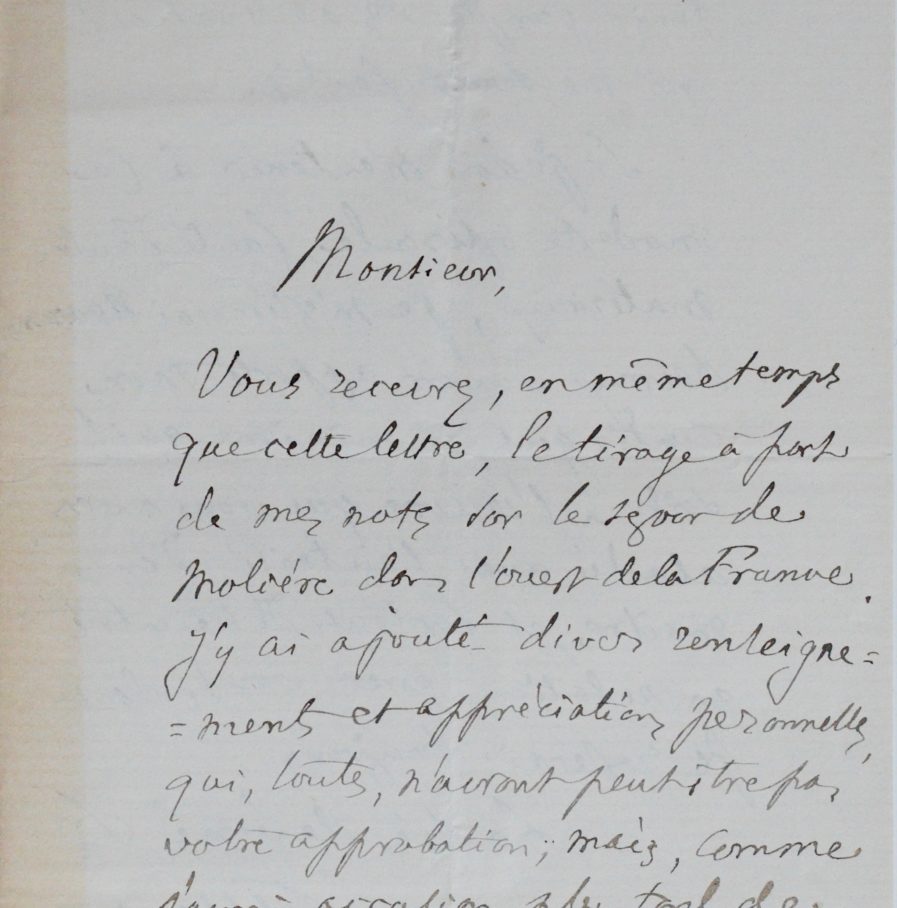 Monsieur,
Vous recevrez, en même temps
que cette lettre, le tirage à part
de mes notes sur le séjour de
Molière dans l'ouest de la France.
J'y ai ajouté divers renseigne=
=ments et appréciations personnelles,
qui, toutes, n'auront peut être pas
votre approbation; mais, comme
j'aurai occasion plus tard de